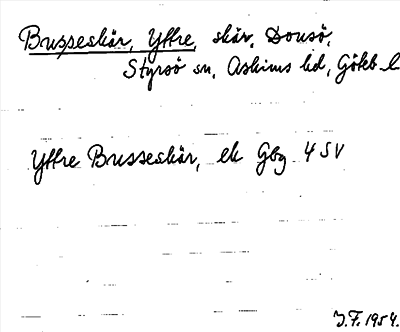 Busseskär, Yttre, skär, Donsö,
Styrsö sn, Askims hd, Göteb. l.
Yttre Busseskär, ek Gbg 4 SV
J.F. 1954.